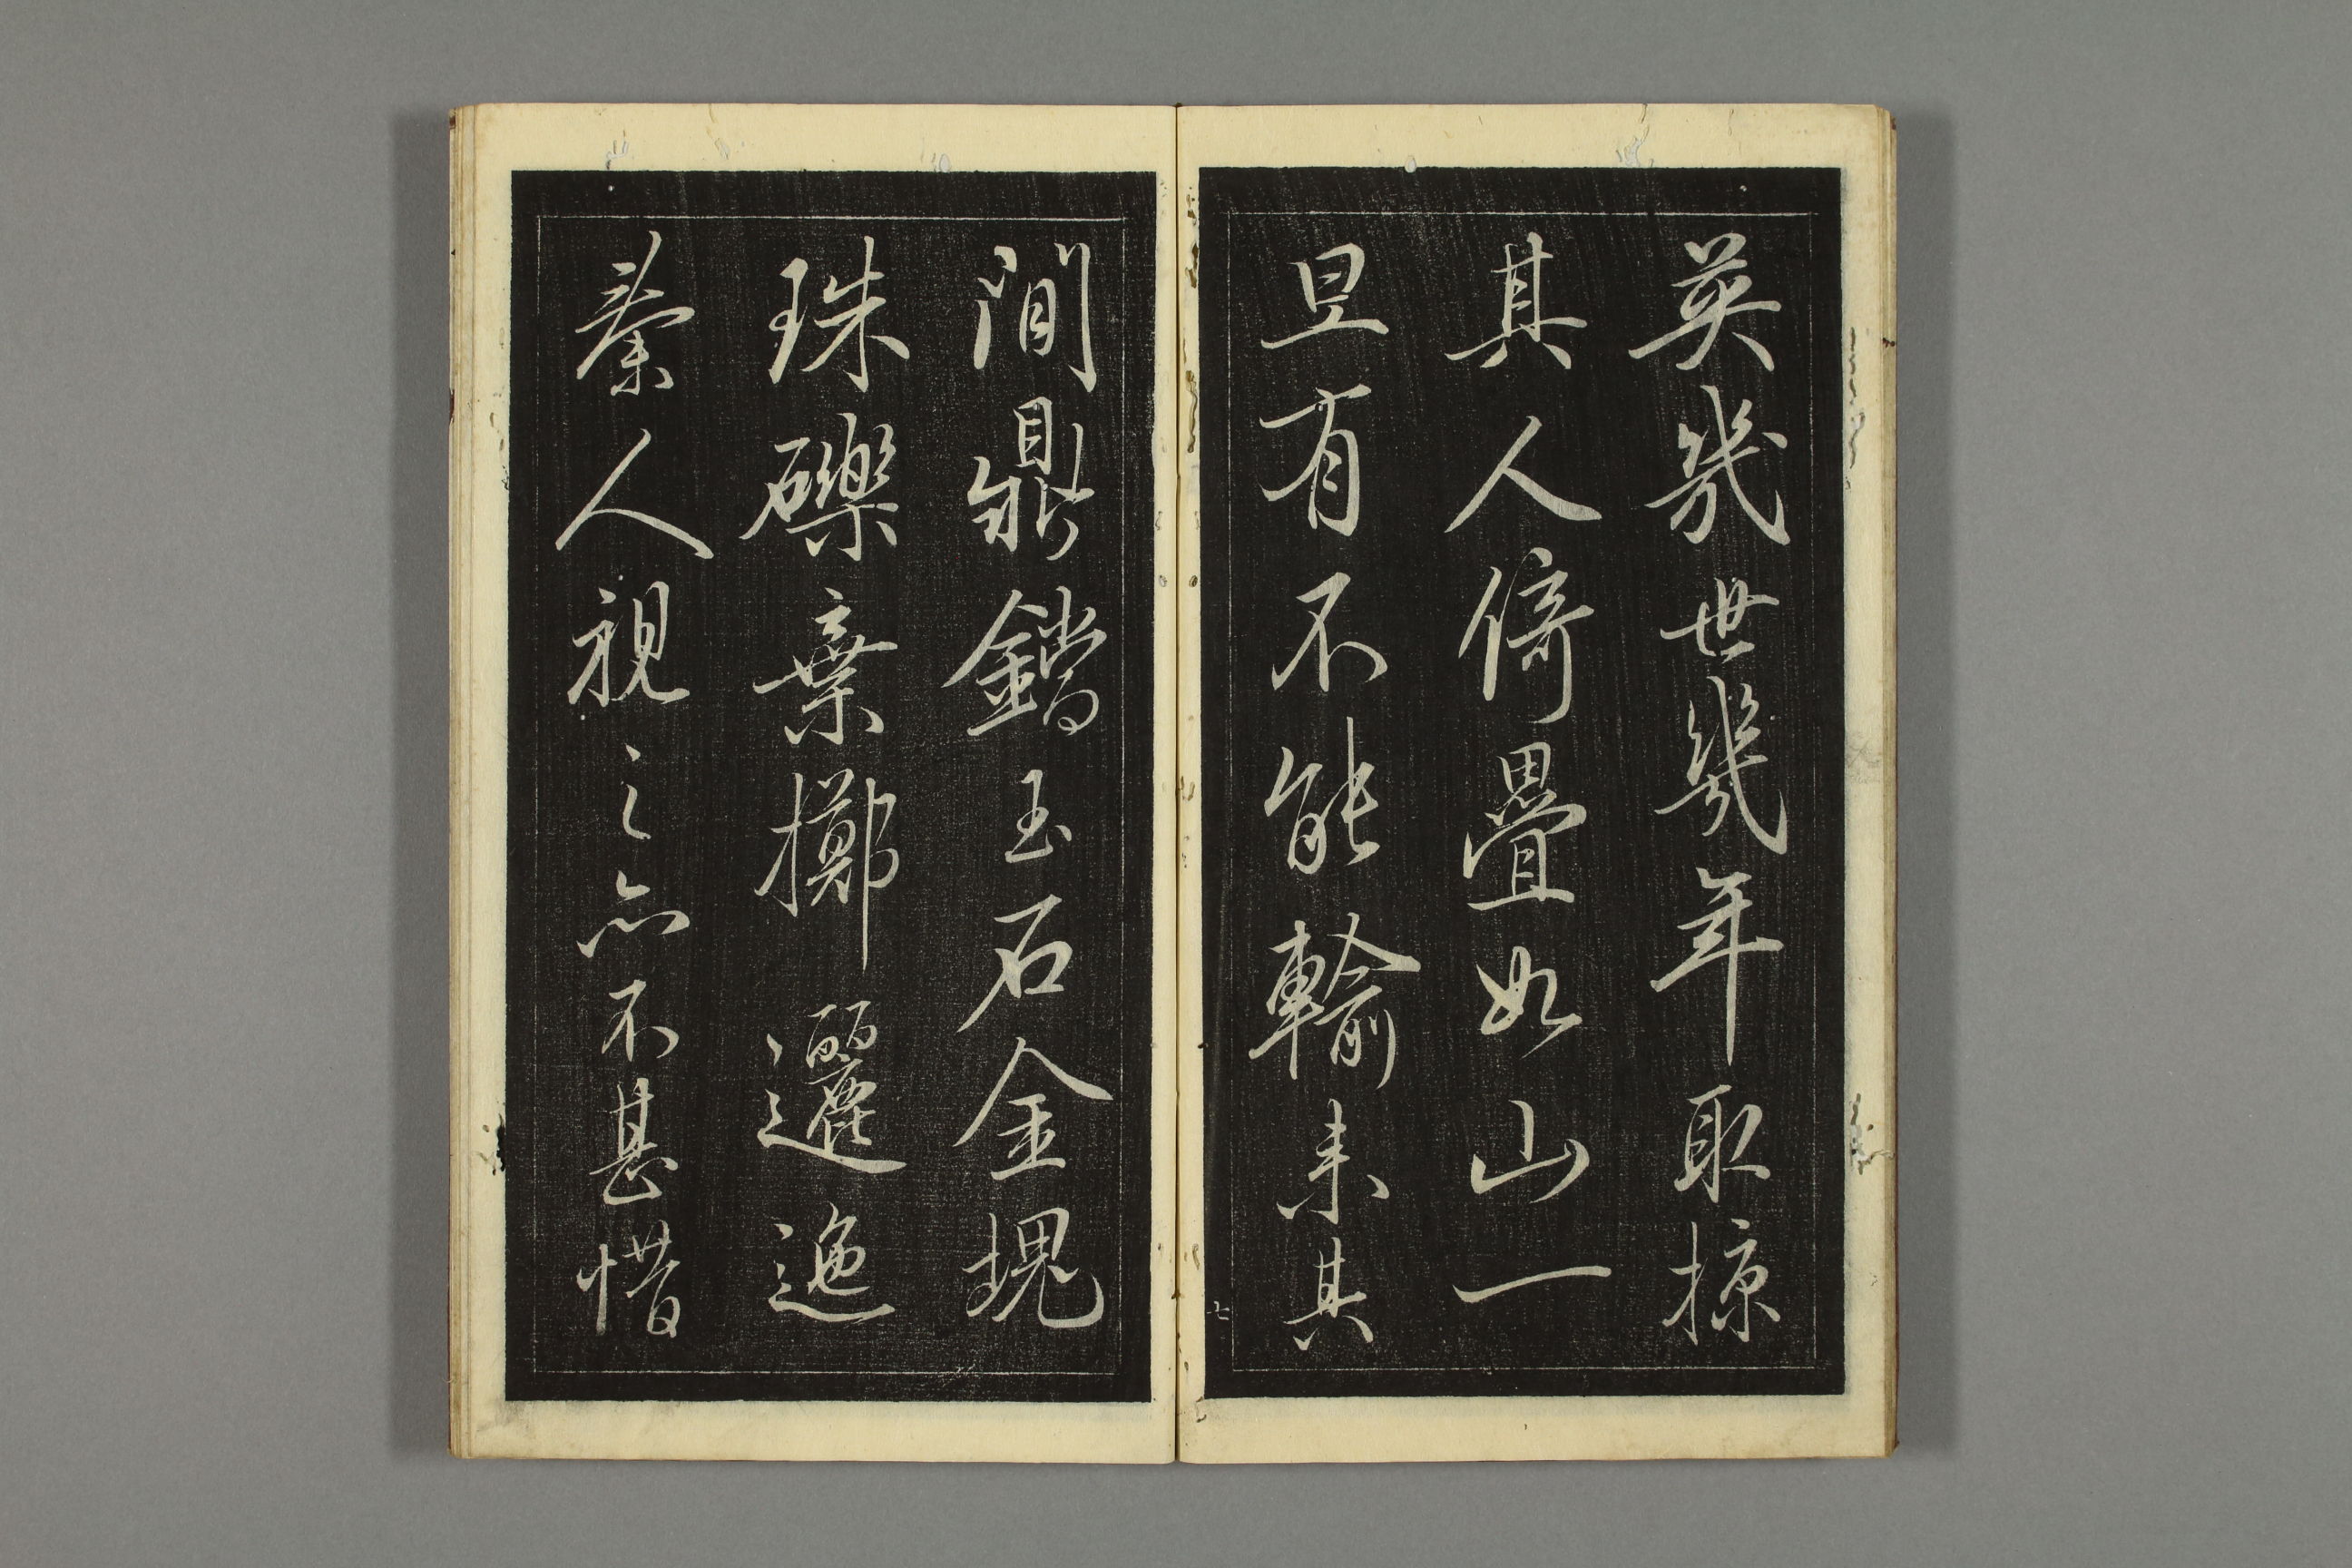 英幾世幾年取掠
其人倚疊如山一
旦有不能輸来其
間鼎鐺玉石金塊
珠礫棄擲邐迤
秦人視之亦不甚惜
七